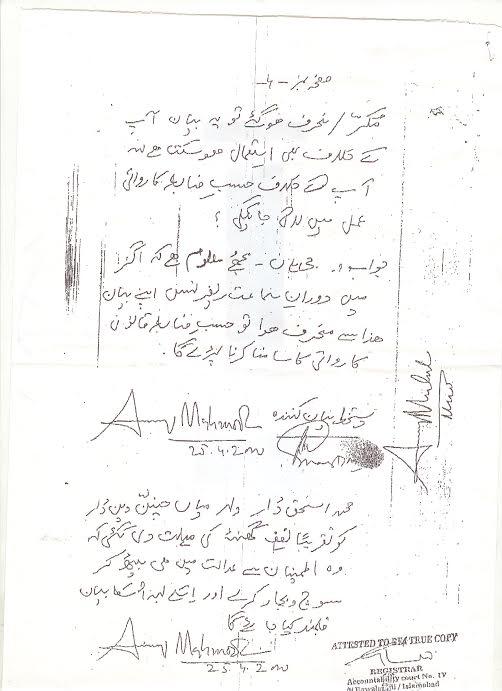 صفحہ نمبر - 4 -
منکر / منحرف ہو گئے تو یہ بیان آپ
کے خلاف بھی استعمال ہو سکتا ہے اور
آپ کے خلاف حسب ضابطہ کاروائی
عمل میں لائی جائیگی ؟
جواب :- جی ہاں - مجھے معلوم ہے کہ اگر
میں دوران سماعت ریفرنس اپنے بیان
ھذا سے منحرف ہوا تو حسب ضابطہ قانون
کاروائی کا سامنا کرنا پڑے گا.
دستخط بیان کنندہ
25.4.2000
محمد اسحق ڈار ولد میاں دین ڈار
کو تقریباً نصف گھنٹہ کی مہلت دی گئی کہ
وہ اطمینان سے عدالت میں ہی بیٹھ کر
سوچ و بچار کرے اور اسکے بعد اسکا بیان
قلمبند کیا جائے گا
25.4.2000
ATTESTED TO BE A TRUE COPY
REGISTRAR
Accountability court No. IV
At Rawalpindi / Islamabad